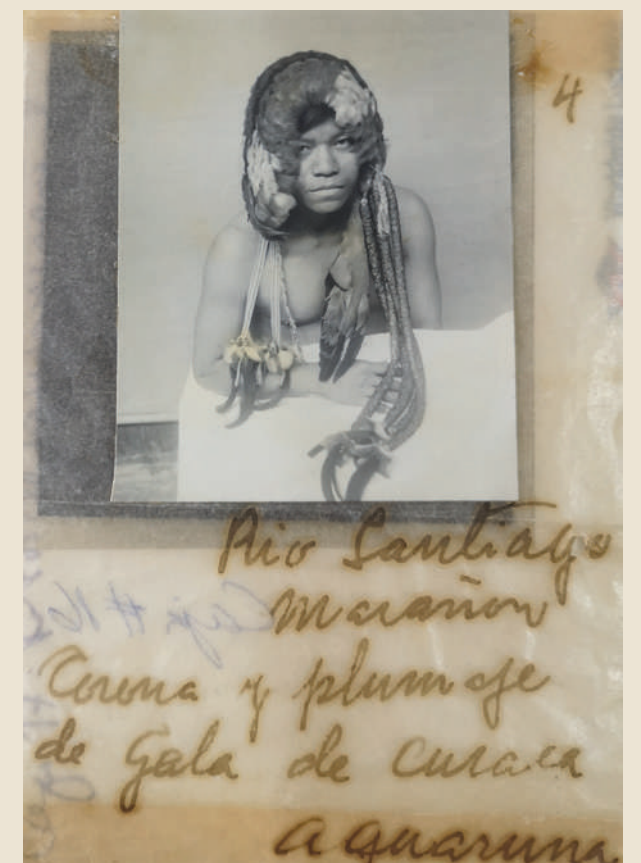 4
Rio Santiago
Marañon
Caja # 16
Corona y plumaje
de gala de curaca
aguaruna